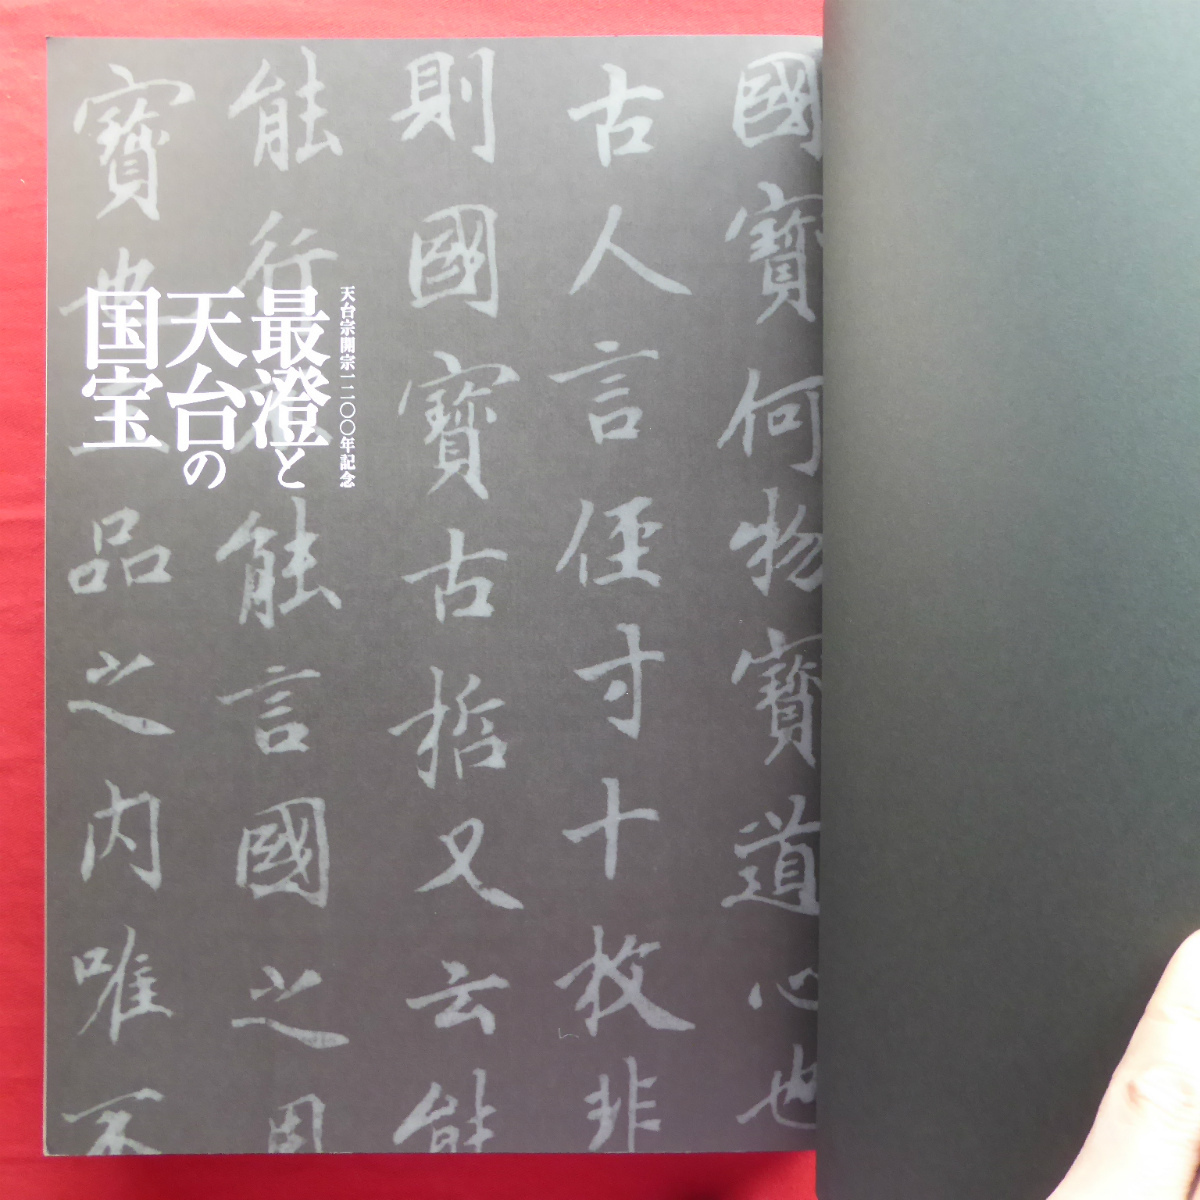 國寶何物寶道心也
古人言径寸十枚非
則國寶古哲又云能
能行不能言國之用
寶也三品之内唯不
天台宗開宗一二〇〇年記念
最澄と
天台の
国宝